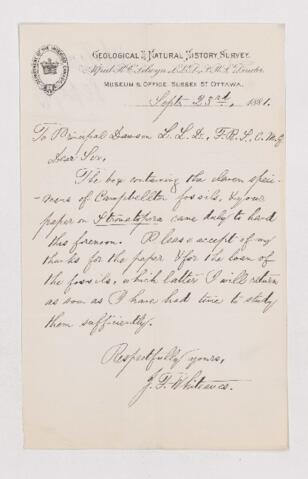 GEOLOGICAL & NATURAL HISTORY SURVEY.
Alfred R. C. Selwyn, L.L.D., F.R.S., Director.
MUSEUM & OFFICE, SUSSEX ST OTTAWA.
DEPARTMENT OF THE INTERIOR CANADA
Sept. 23rd, 1881.
To Principal Dawson L. L. D., F. R. S., C. M. G.
Dear Sir,
The box containing the eleven speci-
-mens of Campbellton fossils, & your
paper on Stromatopora came duly to hand
this forenoon. Please accept of my
thanks for the paper & for the loan of
the fossils, which latter I will return
as soon as I have had time to study
them sufficiently.
Respectfully yours,
J. F. Whiteaves.